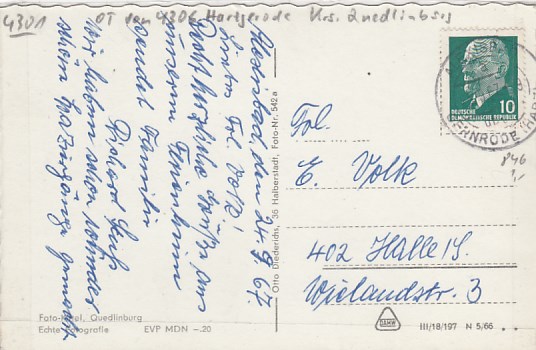 4301 OT von 4306 Harzgerode Krs. Quedlinburg
den 24.9.67.
Liebes Frl. Volk!
Recht herzliche Grüße aus
unserem Ferienheim
sendet Familie
Richard
Wir haben schon wunder
schöne Spaziergänge gemacht
Foto-Insel, Quedlinburg
Echte Fotografie EVP MDN –.20
Otto Diederichs, 36 Halberstadt, Foto-Nr. 542a
DEUTSCHE
DEMOKRATISCHE REPUBLIK
10
ERNRODE (HARZ)
846
Frl.
E. Volk
402 Halle/S.
Wielandstr. 3
III/18/197 N 5/66